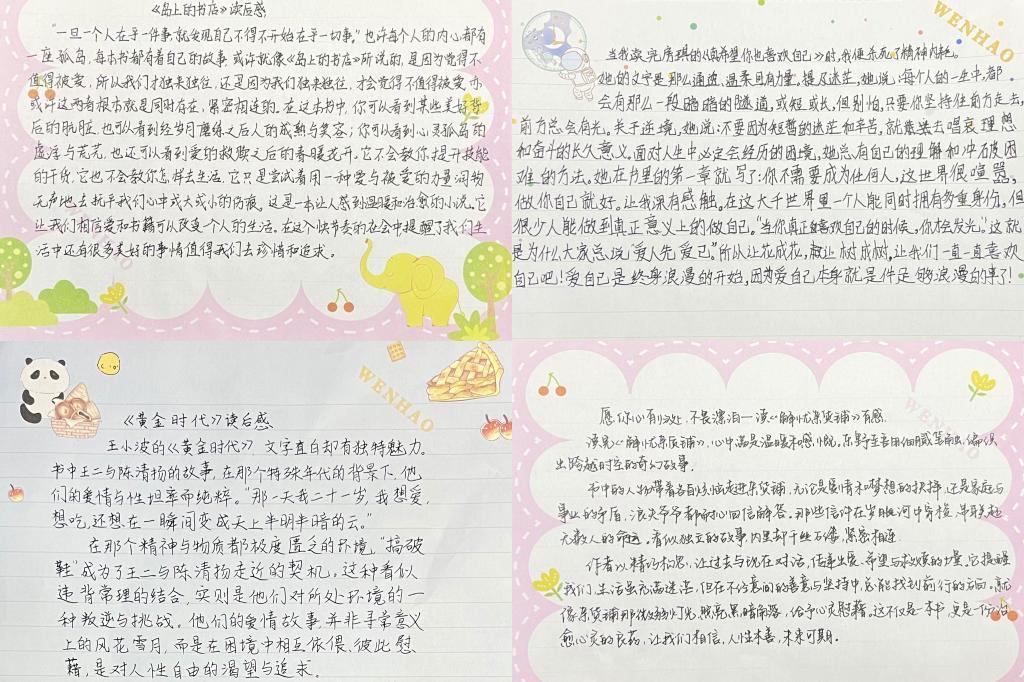 《岛上的书店》读后感
"一旦一个人在乎一件事,就发现自己不得不开始在乎一切事。"也许每个人的内心都有
一座孤岛,每本书都有着自己的故事,或许就像《岛上的书店》所说的,是因为觉得不
值得被爱,所以我们才独来独往,还是因为我们独来独往,才会觉得不值得被爱,亦
或许这两者根本就是同时存在,紧密相连的。在这本书中,你可以看到某些美好背
后的肮脏,也可以看到经岁月磨练之后人的成熟与宽容;你可以看到心灵孤岛的
虚浮与荒芜,也还可以看到爱的救赎之后的春暖花开。它不会教你提升技能
的干货,它也不会教你怎样去生活,它只是尝试着用一种爱与被爱的力量润物
无声地去抚平我们心中或大或小的伤痕。这是一本让人感到温暖和治愈的小说,它
让我们相信爱和书籍可以改变一个人的生活。在这个快节奏的社会中提醒了我们生
活中还有很多美好的事情值得我们去珍惜和追求。
WENHAO
当我读完房琪的《真希望你也喜欢自己》时,我便杀死了精神内耗。
她的文字是那么通透、温柔且有力量。提及迷茫,她说:每个人的一生中,都
会有那么一段暗暗的隧道,或短或长,但别怕,只要你坚持往前方走去,
前方总会有光。关于逆境,她说:不要因为短暂的迷茫和辛苦,就急哄哄去唱衰理想
和奋斗的长久意义。面对人生中必定会经历的困境,她总有自己的理解和冲破困
难的方法。她在卢里的第一章就写了:你不需要成为任何人,这世界很喧嚣,
做你自己就好。让我深有感触。在这大千世界里一个人能同时拥有多重身份,但
很少人能做到真正意义上的做自己。"当你真正喜欢自己的时候,你才会发光。"这就
是为什么大家总说"爱人先爱己"。所以让花成花,就让树成树,让我们一直一直喜欢
自己吧!爱自己是终身浪漫的开始,因为爱自己本身就是件足够浪漫的事了!
WENHAO
《黄金时代》读后感
王小波的《黄金时代》,文字直白却有独特魅力。
书中王二与陈清扬的故事,在那个特殊年代的背景下,他
们的爱情与性坦率而纯粹。"那一天我二十一岁,我想爱,
想吃,还想在一瞬间变成天上半明半暗的云。"
在那个精神与物质都极度匮乏的环境,"搞破
鞋"成为了王二与陈清扬走近的契机。这种看似
违背常理的结合,实则是他们对所处环境的一
种叛逆与挑战。他们的爱情故事并非寻常意义
上的风花雪月,而是在困境中相互依偎、彼此慰
藉,是对人性自由的渴望与追求。
WENHAO
愿你心有归处,不畏漂泊—读《解忧杂货铺》有感
读完《解忧杂货铺》,心中满是温暖和感慨,东野圭吾用细腻笔触,编织
出跨越时空的奇幻故事。
书中的人物带着各自的烦恼走进杂货铺,无论是爱情和梦想的抉择,还是家庭与
事业的矛盾,浪矢爷爷都耐心回信解答。那些信件在岁月长河中穿梭,串联起
无数人的命运。看似独立的故事,内里却千丝万缕,紧密相连。
作者以精巧构思,让过去与现在对话,传递出爱、希望与救赎的力量,它提醒
我们,生活虽充满迷茫,但在不经意间的善意与坚持中,总能找到前行的方向,就
像杂货铺那微弱灯光,照亮黑暗角落,给予心灵慰藉。这不仅是一本书,更是一份治
愈心灵的良药,让我们相信,人性本善,未来可期。